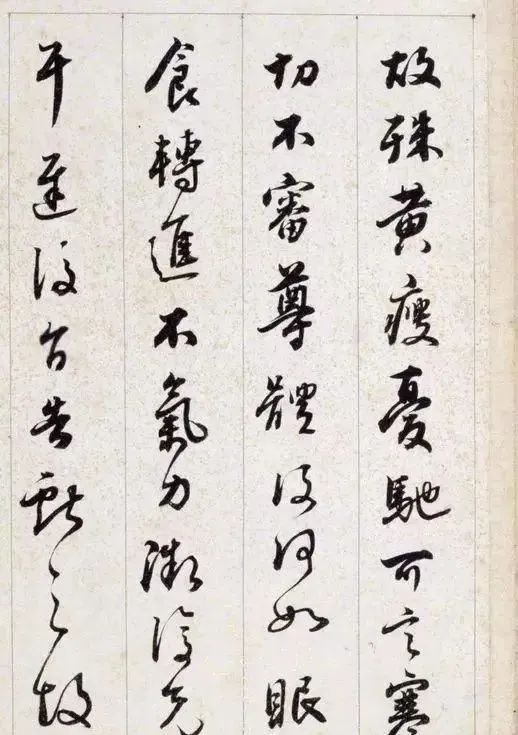 故殊黃瘦憂馳可言寒
切不審尊體復何如眠
食轉進不氣力漸復
遲復告獻之故